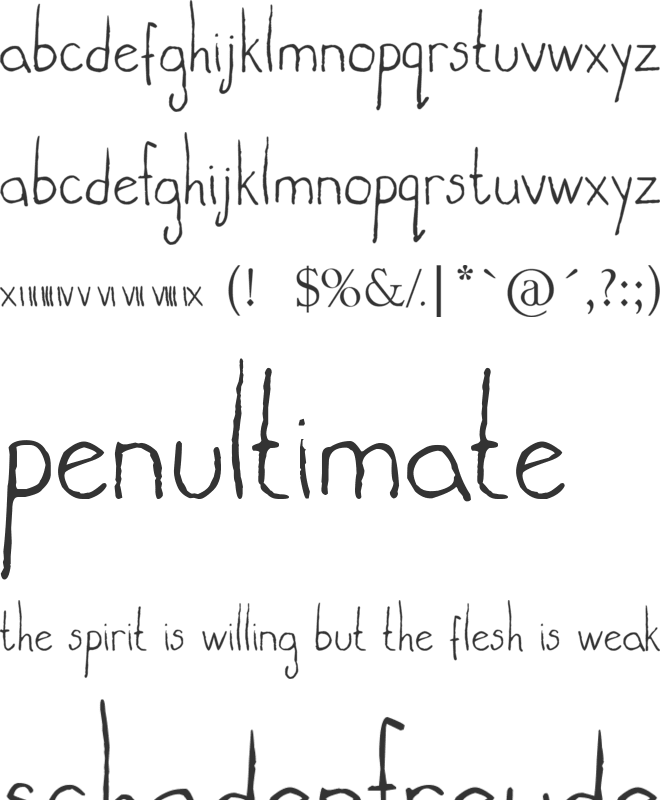 abcdefghijklmnopqrstuvwxyz
abcdefghijklmnopqrstuvwxyz
X I II III IV V VI VII VIII IX (! $%&/.|*`@´,?:;)
penultimate
the spirit is willing but the flesh is weak
schadenfreude